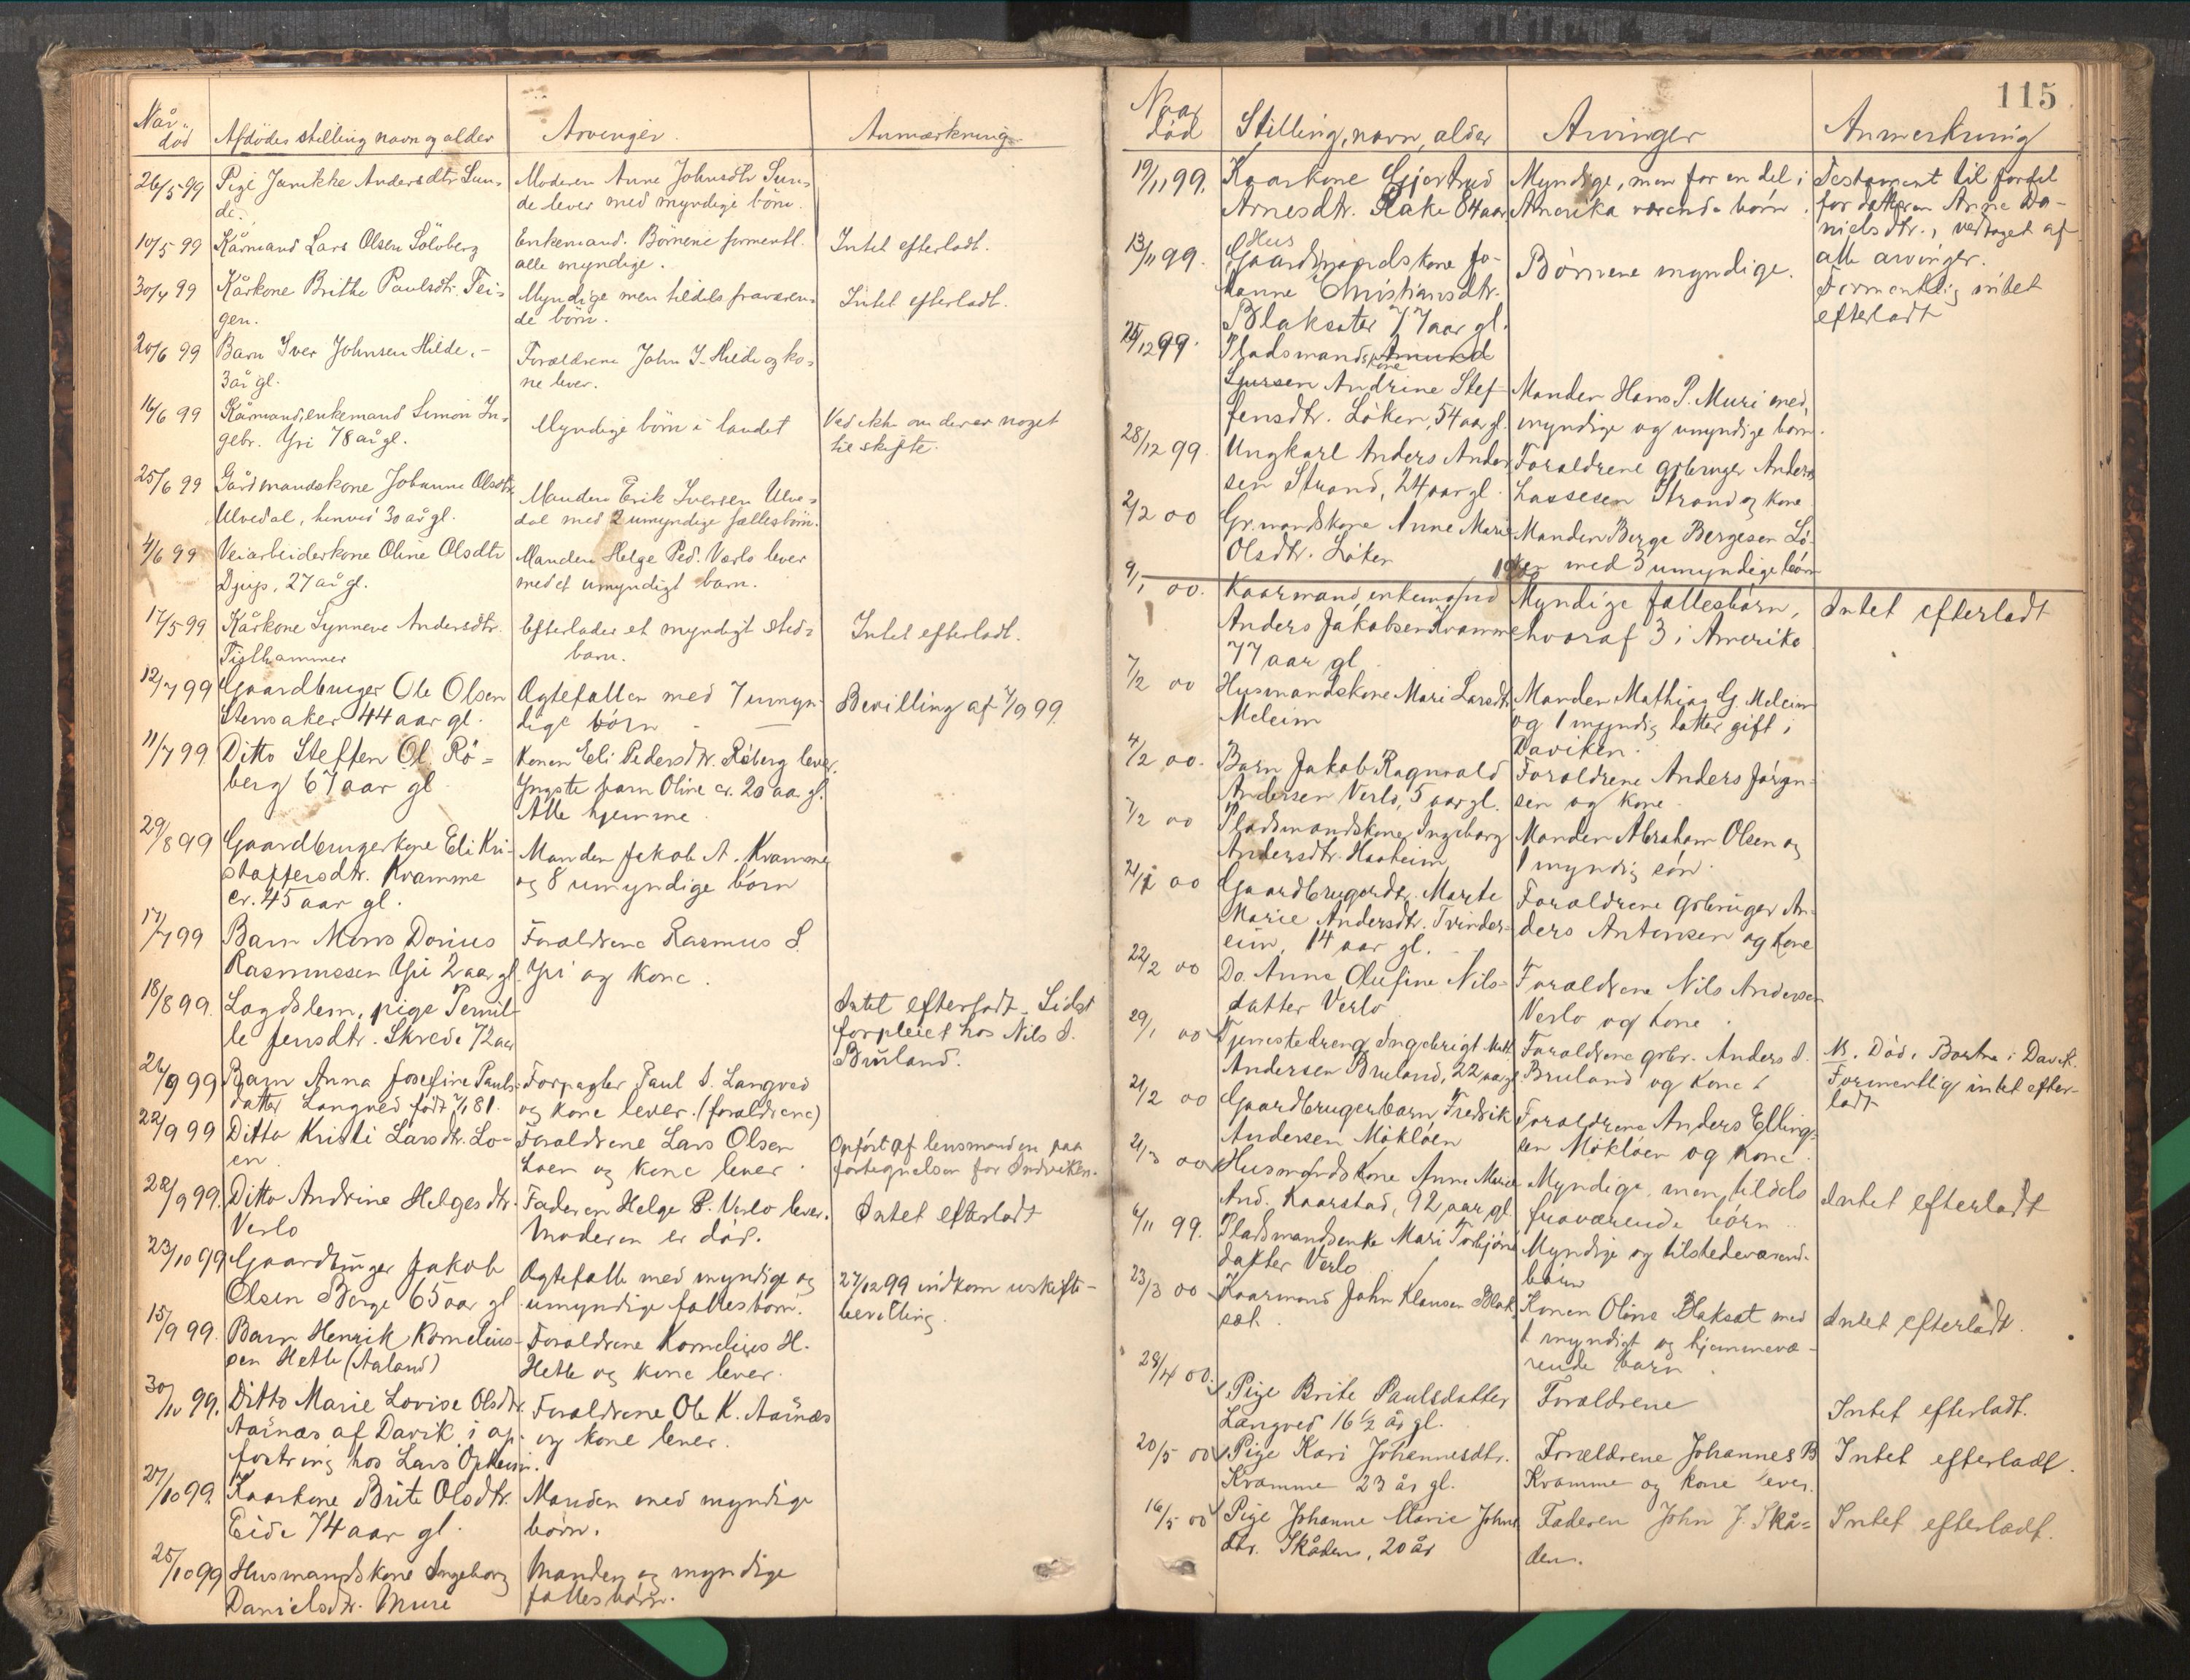 Når
død
Afdødes stilling navn og alder
Arvinger
Anmærkning
26/5 99
Pige Janikke Andersdtr Sun-
de.
Moderen Anne Johnsdtr Sun-
de lever med myndige børn.
10/5 99
Kårmand Lars Olsen Sölvberg
Enkemand. Börnene formentl.
alle myndige.
Intet efterladt.
30/4 99
Kårkone Brithe Paulsdtr. Tei-
gen.
Myndige men tildels fraværen-
de börn.
Intet efterladt.
20/6 99
Barn Iver Johnsen Hilde.-
3 år gl.
Forældrene John J. Hilde og ko-
ne lever.
16/6 99
Kårmand, enkemand Simon In-
gebr. Yri 78 år gl.
Myndige börn i landet
Ved ikke om der er noget
til skifte.
25/6 99
Gårdmandskone Johanne Olsdtr
Ulvedal, henved 30 år gl.
Manden Erik Iversen Ulve-
dal med 2 umyndige fællesbörn.
4/6 99
Veiarbeiderkone Oline Olsdtr
Djup, 27 år gl.
Manden Helge Ped. Værlo lever
med et umyndigt barn.
17/5 99
Kårkone Synneve Andersdtr.
Tislhammer
Efterlader et myndigt sted-
barn.
Intet efterladt.
12/7 99
Gaardbruger Ole Olsen
Stensaker 44 aar gl.
Ægtefællen med 7 umyn-
dige børn
Bevilling af 4/9 99.
11/7 99
Ditto Steffen Ol. Rö-
berg 67 aar gl
Konen Eli Pedersdtr. Röberg lever.
Yngste barn Oline cr. 20 aa gl.
Alle hjemme.
29/8 99
Gaardbrugerkone Eli Kri-
stoffersdtr. Kramme
cr. 45 aar gl.
Manden Jakob A. Kramme
og 8 umyndige börn
17/7 99
Barn Mons Dorius
Rasmussen Yri 2 aar gl.
Forældrene Rasmus S.
Yri og kone.
18/8 99.
Lægdslem, pige Pernil-
le Jensdtr. Skrede 72 aar
Intet efterladt. Sidst
forpleiet hos Nils S.
Bruland.
26/9 99
Barn Anna Josefine Pauls-
datter Langved født
Forpagter Paul S. Langved
og kone lever. (forældrene)
22/9 99
Ditto Kristi Larsdtr. Lo-
en
Forældrene Lars Olsen
Loen og kone lever.
Opført af lensmanden paa
fortegnelsen for Indviken.
28/9 99.
Ditto Andrine Helgesdtr.
Verlo
Faderen Helge P. Verlo lever.
Moderen er död.
Intet efterladt
23/10 99
Gaardbruger Jakob
Olsen Berge 65 aar gl
Ægtefælle med myndige og
umyndige fællesbørn.
27/12 99 indkom uskifte-
bevilling
15/9 99.
Barn Henrik Kornelius-
sen Hetle (Aaland)
Forældrene Kornelius H.
Hetle og kone lever.
30/10 99.
Ditto Marie Lovise Olsdtr
Aarnæs af Davik, i op-
fostring hos Lars Opheim.
Forældrene Ole K. Aarnæs
og kone lever.
27/10 99.
Kaarkone Brite Olsdtr.
Eide 74 aar gl.
Manden med myndige
børn.
25/10 99
Husmandskone Ingeborg
Danielsdtr. Muri
Manden og myndige
fællesbørn.
115
Naar
død
Stilling, navn, alder
Arvinger
Anmerkning
19/11 99.
Kaarkone Gjertrud
Arnesdtr. Rake 84 aar
Myndige, men for en del i
Amerika værende børn.
Testament til fordel
for datteren Anne Da-
nielsdtr., vedtaget af
alle arvinger.
13/11 99.
Hus
Gaardmandskone Jo-
hanne Christiansdtr.
Blaksæter 77 aar gl.
Börnene myndige.
Formentlig intet
efterladt
25/12 99.
Pladsmandskone Amund
Sjursen Andrine Stef-
fensdtr. Løken, 54 aar gl.
Manden Hans P. Muri med
myndige og umyndige børn.
28/12 99.
Ungkarl Anders Ander
sen Strand, 24 aar gl.
Forældrene grbruger Anders
Lassesen Strand og kone
2/2 00
Gr.mandskone Anne Marie
Olsdtr. Løken
Manden Berge Bergesen Lö-
ken med 3 umyndige børn
9/1 00.
Kaarmand, enkemand
Anders Jakobsen Kramme
77 aar gl.
Myndige fællesbørn,
hvoraf 3 i Amerika
Intet efterladt
7/2 00
Husmandskone Mari Larsdtr
Meleim
Manden Mathias G. Meleim
og 1 myndig datter gift i
Daviken.
4/2 00.
Barn Jakob Ragnvald
Andersen Verlo, 5 aar gl.
Forældrene Anders Jörgen-
sen og kone.
7/2 00
Pladsmandskone Ingeborg
Andersdtr. Haaheim
Manden Abraham Olsen og
1 myndig søn.
21/1 00
Gaardbrugerdtr. Marte
Marie Andersdtr. Tvinder-
eim, 14 aar gl.
Forældrene grbruger An-
ders Antonsen og kone
22/2 00
Do. Anne Olufine Nils-
datter Verlo
Forældrene Nils Andersen
Verlo og kone.
29/1 00
Tjenestedreng Ingebrigt Matt.
Andersen Bruland, 22 aar gl
Forældrene grbr. Anders S.
Bruland og kone
N. Död i Bortne i Davik.
Formentlig intet efter-
ladt
21/2 00
Gaardbrugerbarn Fredrik
Andersen Mökløen
Forældrene Anders Elling-
sen Mökløen og kone.
21/3 00
Husmandskone Anne Marie
And. Kaarstad, 92 aar gl.
Myndige, men tildels
fraværende børn.
Intet efterladt
6/11 99.
Pladsmandsenke Mari Torbjörns
datter Verlo
Myndige og tilstedeværende
børn
23/3 00
Kaarmand John Klausen Blak-
sæt.
Konen Oline Blaksæt med
1 myndigt og hjemmevæ-
rende barn
Intet efterladt.
28/4 00.
Pige Brite Paulsdatter
Langved 16½ år gl.
Forældrene
Intet efterladt.
20/5 00
Pige Kari Johannesdtr.
Kramme 23 år gl.
Forældrene Johannes B
Kramme og kone lever.
Intet efterladt.
16/5 00
Pige Johanne Marie Johns
dtr. Skåden, 20 år
Faderen John J. Skå-
den.
Intet efterladt.